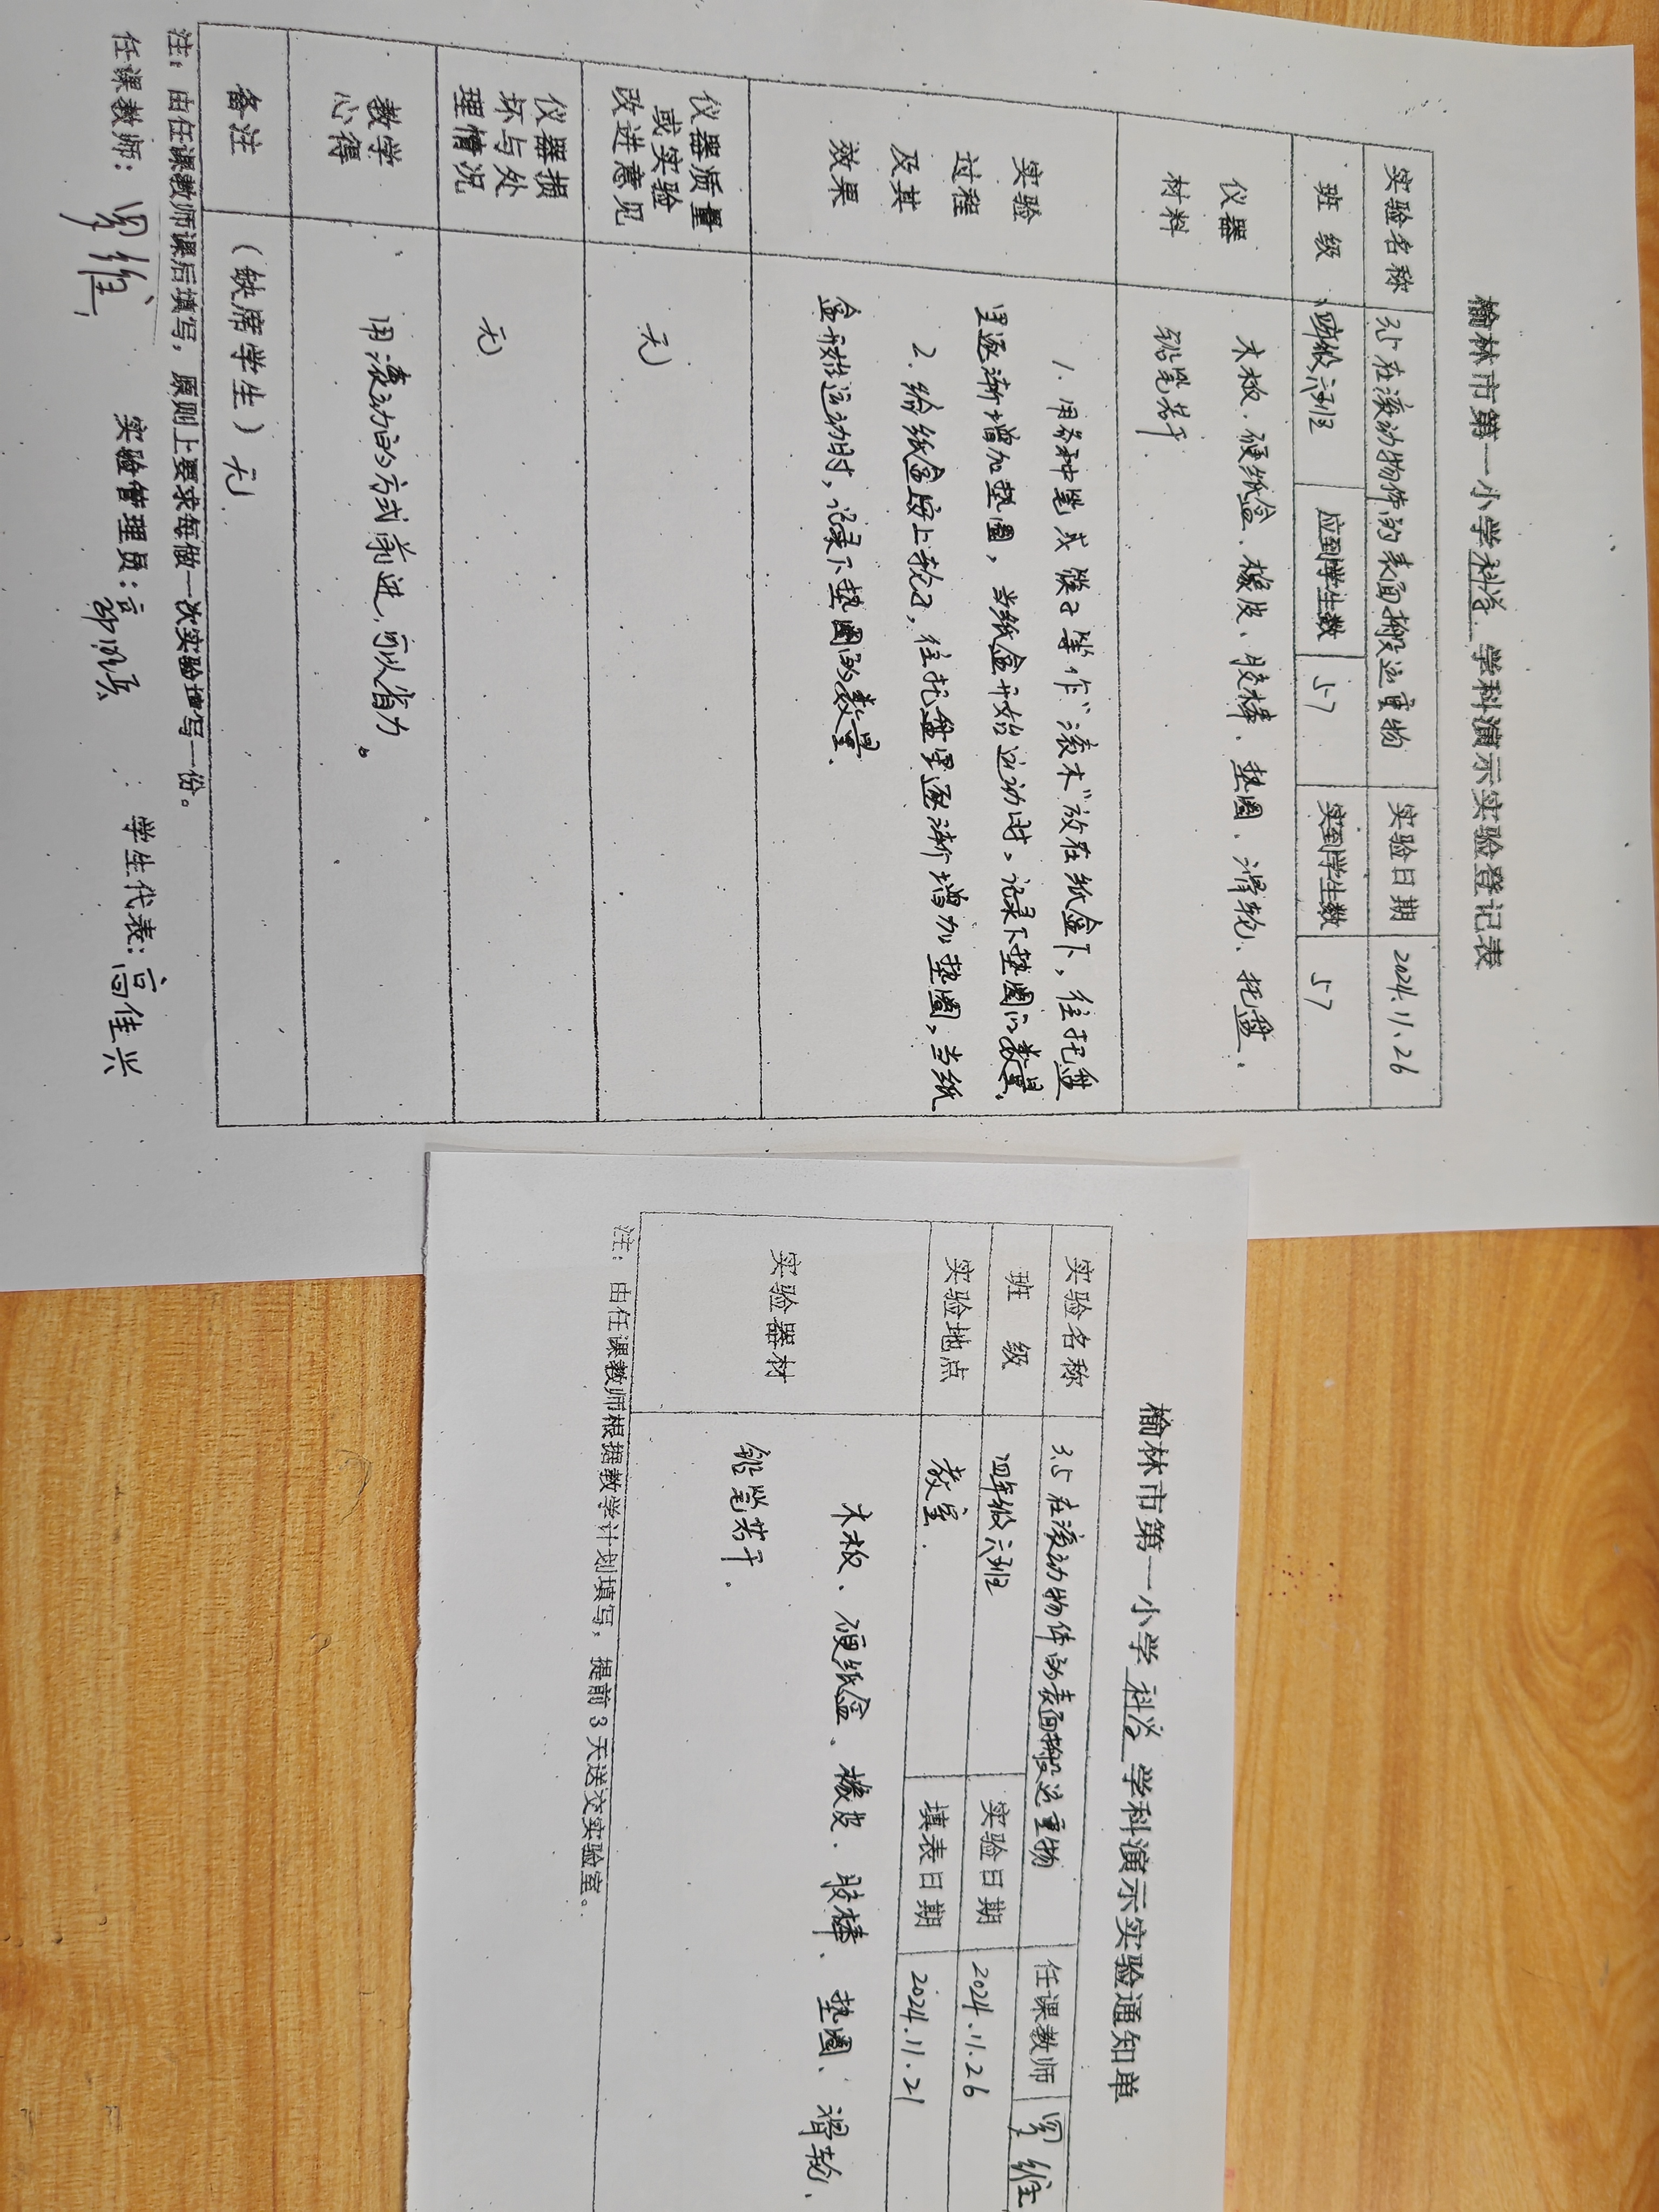 榆林市第一小学科学学科演示实验登记表
实验名称 3.5在滚动物体的表面搬运重物 实验日期 2024.11.26
班 级 四年级六班 应到学生数 57 实到学生数 57
仪器
材料
木板、硬纸盒、橡皮、胶棒、垫圈、滑轮、托盘、
铅笔若干
实验
过程
及其
效果
1、用各种笔或筷子等作"滚木"放在纸盒下，往托盘
里逐渐增加垫圈，当纸盒开始运动时，记录下垫圈的数量。
2、给纸盒安上轮子，往托盘里逐渐增加垫圈，当纸
盒开始运动时，记录下垫圈的数量。
仪器质量
或实验
改进意见
无
仪器损
坏与处
理情况
无
教学
心得
用滚动的方式前进，可以省力。
备注 （缺席学生）无
注：由任课教师课后填写，原则上要求每做一次实验填写一份。
任课教师： 罗维 实验管理员： 学生代表：高佳兴
榆林市第一小学科学学科演示实验通知单
实验名称 3.5在滚动物体的表面搬运重物 任课教师 罗维
班 级 四年级六班 实验日期 2024.11.26
实验地点 教室. 填表日期 2024.11.21
实验器材
木板、硬纸盒、橡皮、胶棒、垫圈、滑轮、
铅笔若干。
注：由任课教师根据教学计划填写，提前3天送交实验室。